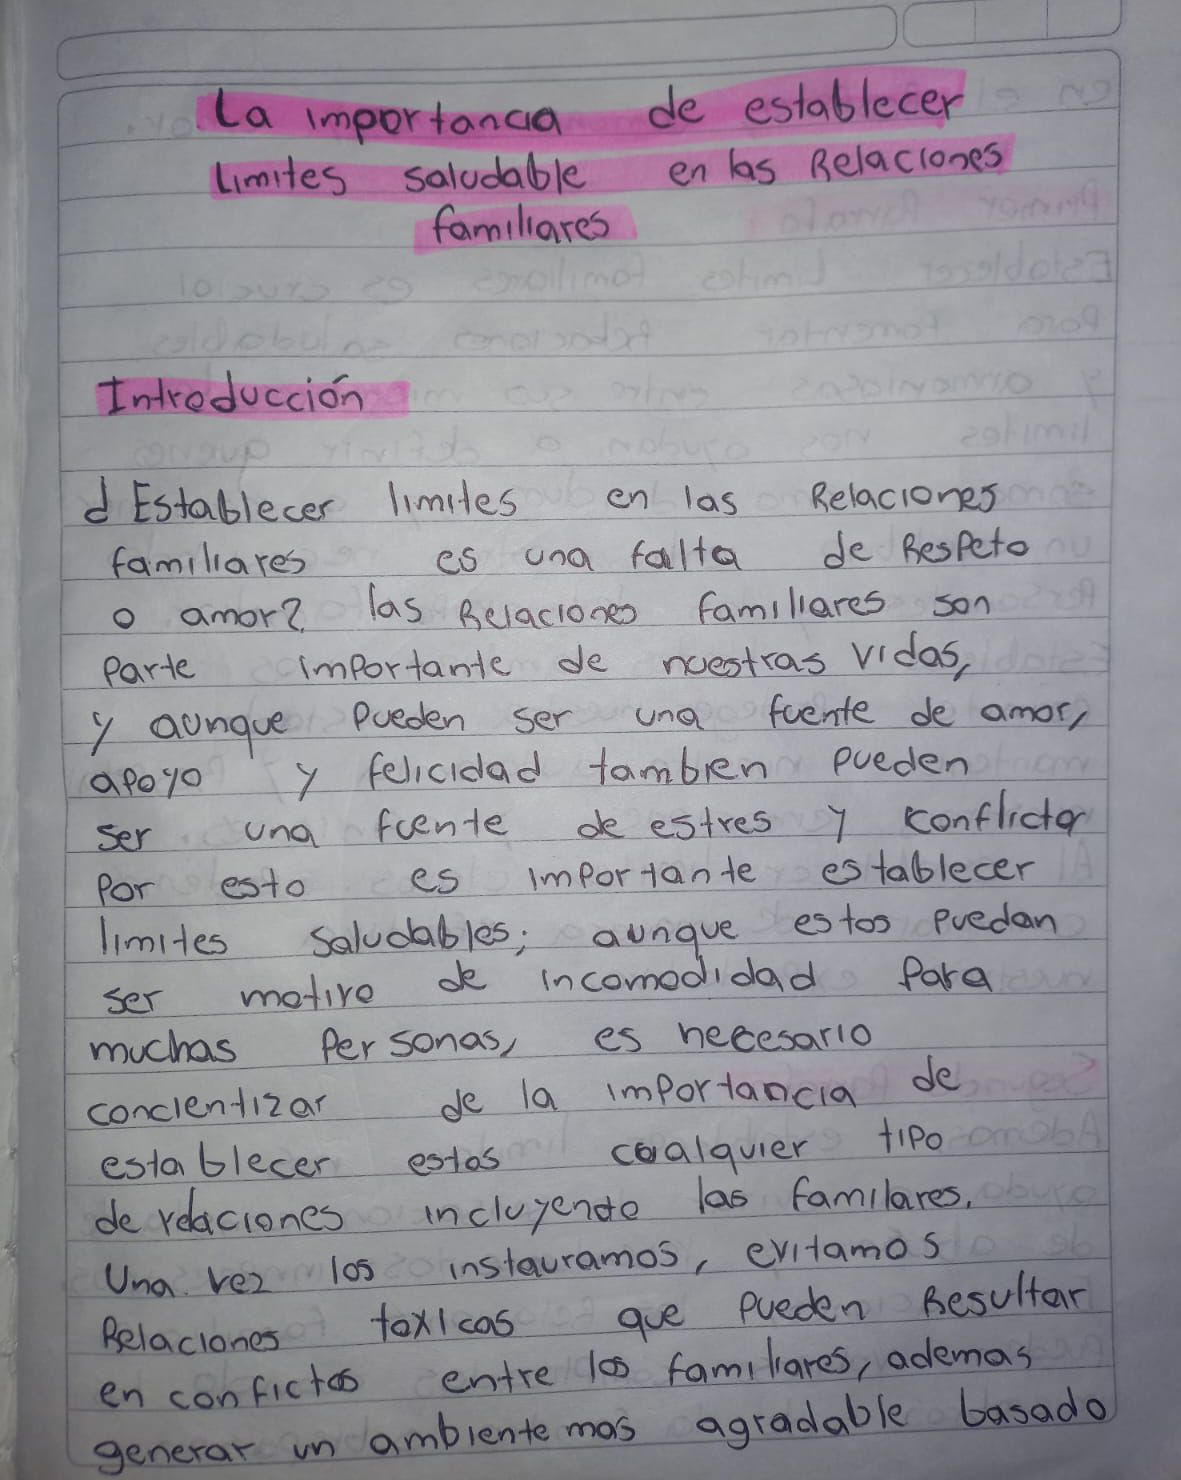 La importancia de establecer
Limites saludable en las Relaciones
familiares
Introducción
¿ Establecer limites en las Relaciones
familiares es una falta de Respeto
o amor? las Relaciones familiares son
Parte importante de nuestras vidas,
y aunque pueden ser una fuente de amor,
apoyo y felicidad tambien pueden
ser una fuente de estres y conflicto
Por esto es importante establecer
limites saludables; aunque estos puedan
ser motivo de incomodidad Para
muchas Personas, es necesario
concientizar de la importancia de
establecer estos cualquier tipo
de relaciones incluyendo las familares.
Una vez los instauramos, evitamos
Relaciones toxicas que pueden Resultar
en confictos entre los familiares, ademas
generar un ambiente mas agradable basado